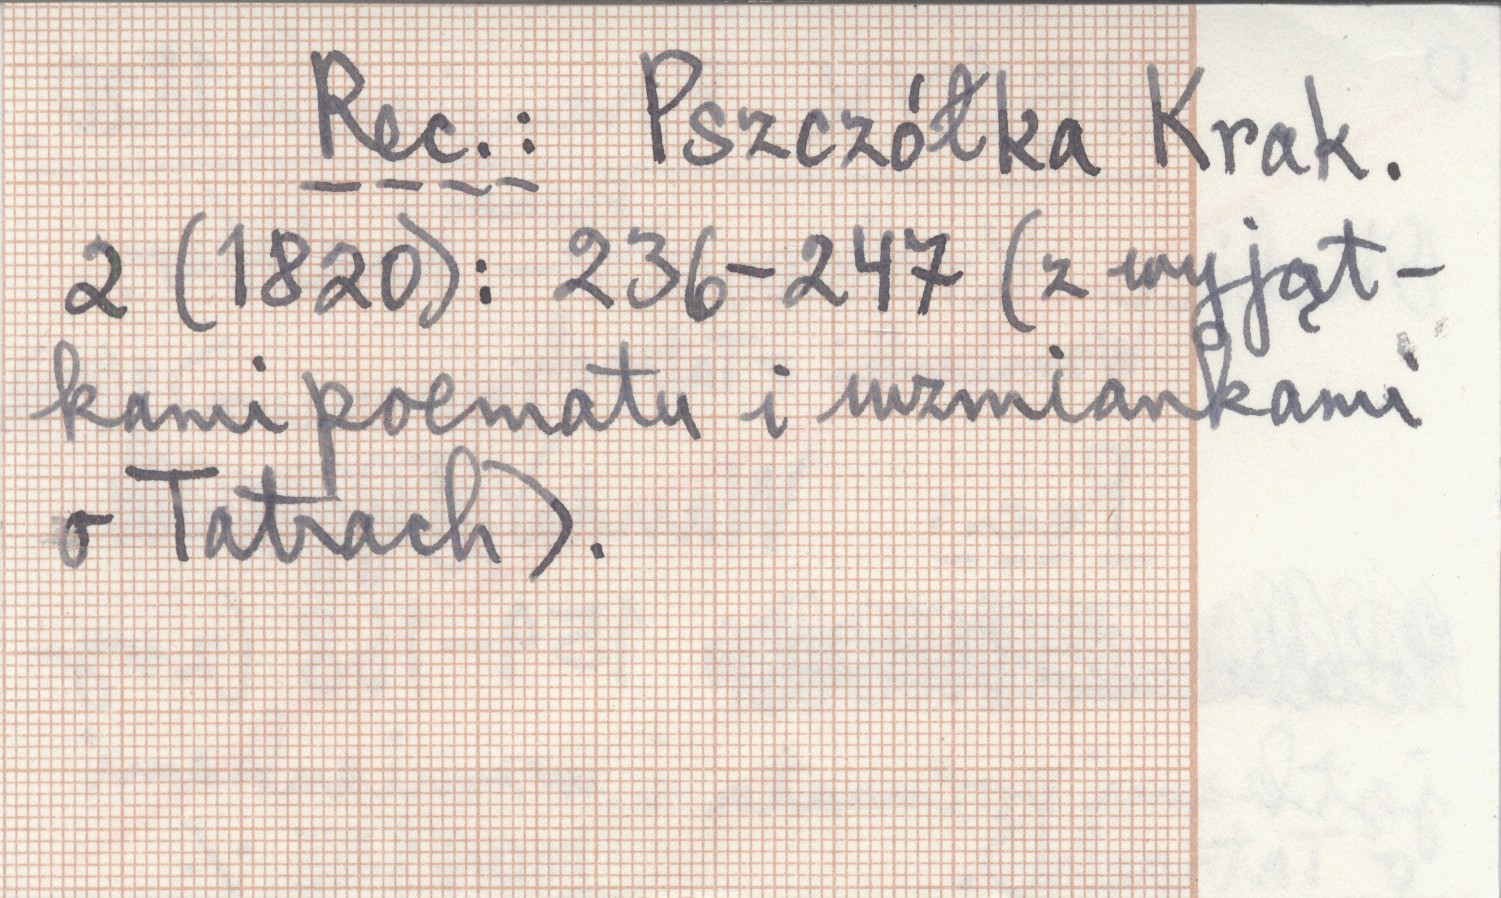 Rec.: Pszczółka Krak.
2 (1820): 236-247 (z wyjąt-
kami poematu i wzmiankami
o Tatrach).